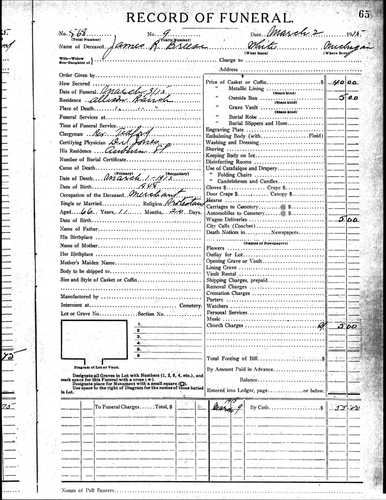 65
RECORD OF FUNERAL.
No. 868 No. 9 Date March 2 1915
(Total Number) (Yearly Number)
Name of Deceased James R White Michigan
(What Race) (Where Born)
Wife—Widow
Son-Daughter of Charge to
Address
Order Given by
How Secured
Date of Funeral March 3/15
Residence
Place of Death
Funeral Services at
Time of Funeral Service
Clergyman Rev.
Certifying Physician Dr. Jones
His Residence
Number of Burial Certificate
Cause of Death
(Primary) (Secondary)
Date of Death March 1 - 1915
Date of Birth 1848
Occupation of the Deceased Merchant
Single or Married Religion Protestant
Aged 66 Years 11 Months, 24 Days
Date of Birth
Name of Father
His Birthplace
Name of Mother
Her Birthplace
Mother's Maiden Name
Body to be shipped to
Size and Style of Casket or Coffin
Manufactured by
Interment at Cemetery.
Lot or Grave No. Section No.
1
2
3
4
5
6
Diagram of Lot or Vault.
Designate all Graves in Lot with Numbers (1, 2, 3, 4, etc.), and mark space for this Funeral with a cross (+)
Designate place for Monument with a small square
Use space to the right of Diagram for the names of those buried in Lot.
Price of Casket or Coffin $ 40 00
" Metallic Lining
(State kind)
" Outside Box 5 00
(State kind)
" Grave Vault
(State kind)
" Burial Robe
" Burial Slippers and Hose
Engraving Plate
Embalming Body (with Fluid)
Washing and Dressing
Shaving
Keeping Body on Ice
Disinfecting Rooms
Use of Catafalque and Drapery
" Folding Chairs
" Candelabrum and Candles
Gloves $ Crape $
Door Crape $ Canopy $
Hearse
Carriages to Cemetery @ $
Automobiles to Cemetery @ $
Wagon Deliveries 5 00
City Calls (Coach)
Death Notices in Newspapers
(Names of Newspapers)
Flowers
Outlay for Lot
Opening Grave or Vault
Lining Grave
Vault Rental
Shipping Charges, prepaid
Removal Charges
Cremation Charges
Porters
Watchers
Personal Services
Music
Church Charges 5 00
Total Footing of Bill $
By Amount Paid in Advance
Balance $
Entered into Ledger, page or below.
To Funeral Charges Total, $ 1915 March 9 By Cash $ 55 00
Names of Pall Bearers